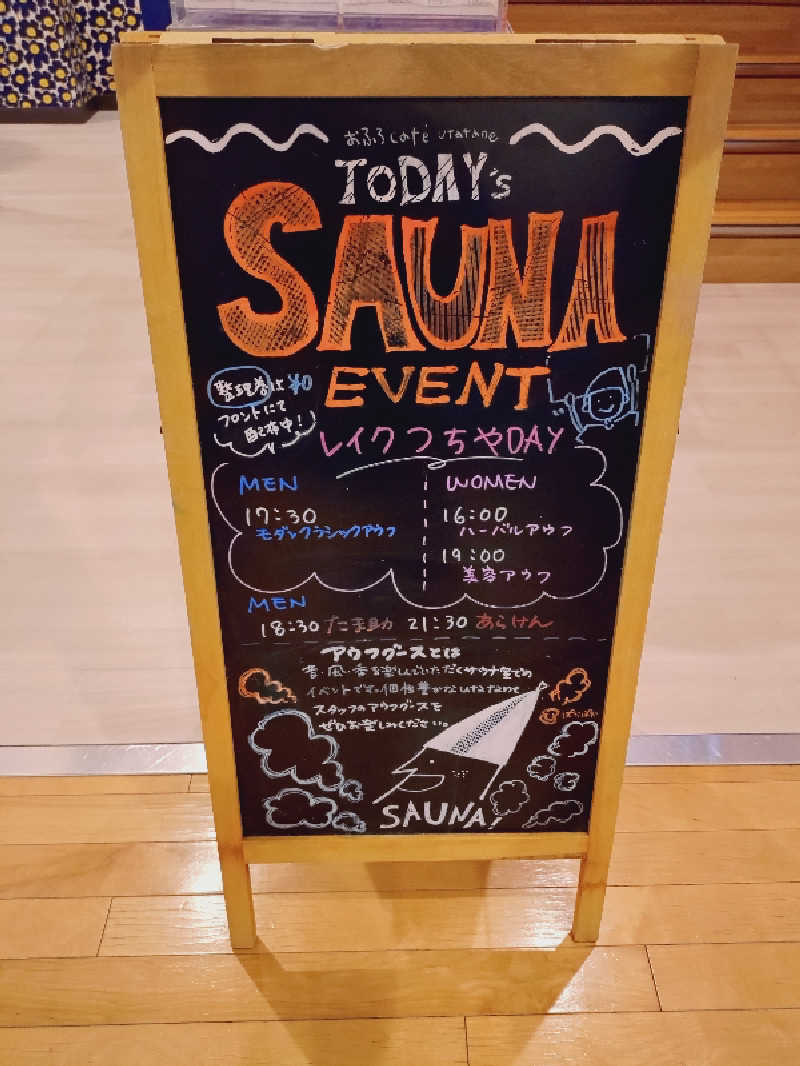 おふろcafé utatane
TODAY's
SAUNA
EVENT
整理券は¥0
フロントにて
配布中!
レイクつちやDAY
MEN
17:30
モダンクラシックアウフ
WOMEN
16:00
ハーバルアウフ
19:00
美容アウフ
MEN
18:30 たま助 21:30 あらけん
アウフグースとは
音・風・香を楽しんでいただくサウナ室での
イベントです。
スタッフのアウフグースを
ぜひお楽しみください。
SAUNA!